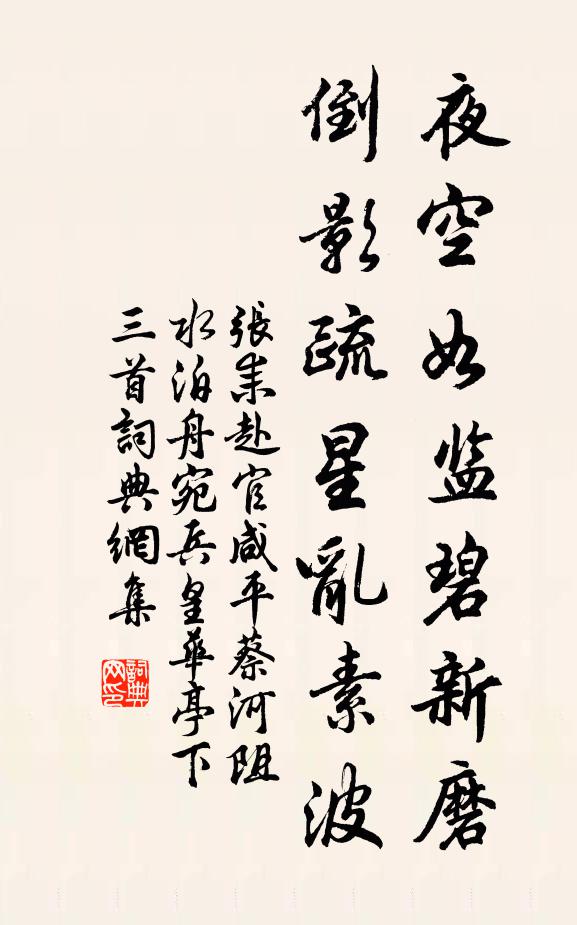 夜空如监碧新磨
倒影疏星亂素波
張耒赴官咸平蔡河阻
水泊舟宛兵皇華亭下
三首詞典網集
詞典网印